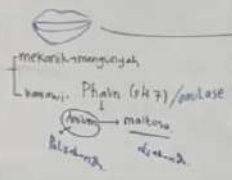 mekanik→mengunyah
kimiawi. Ptialin (pH 7) /amilase
amilum → maltosa
Polisakarida disakarida